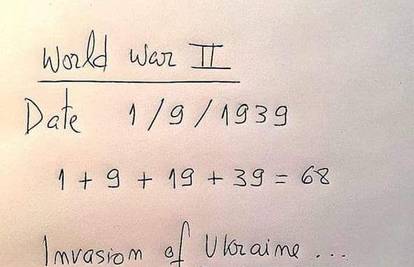 World War II
Date 1/9/1939
1 + 9 + 19 + 39 = 68
Invasion of Ukraine ...